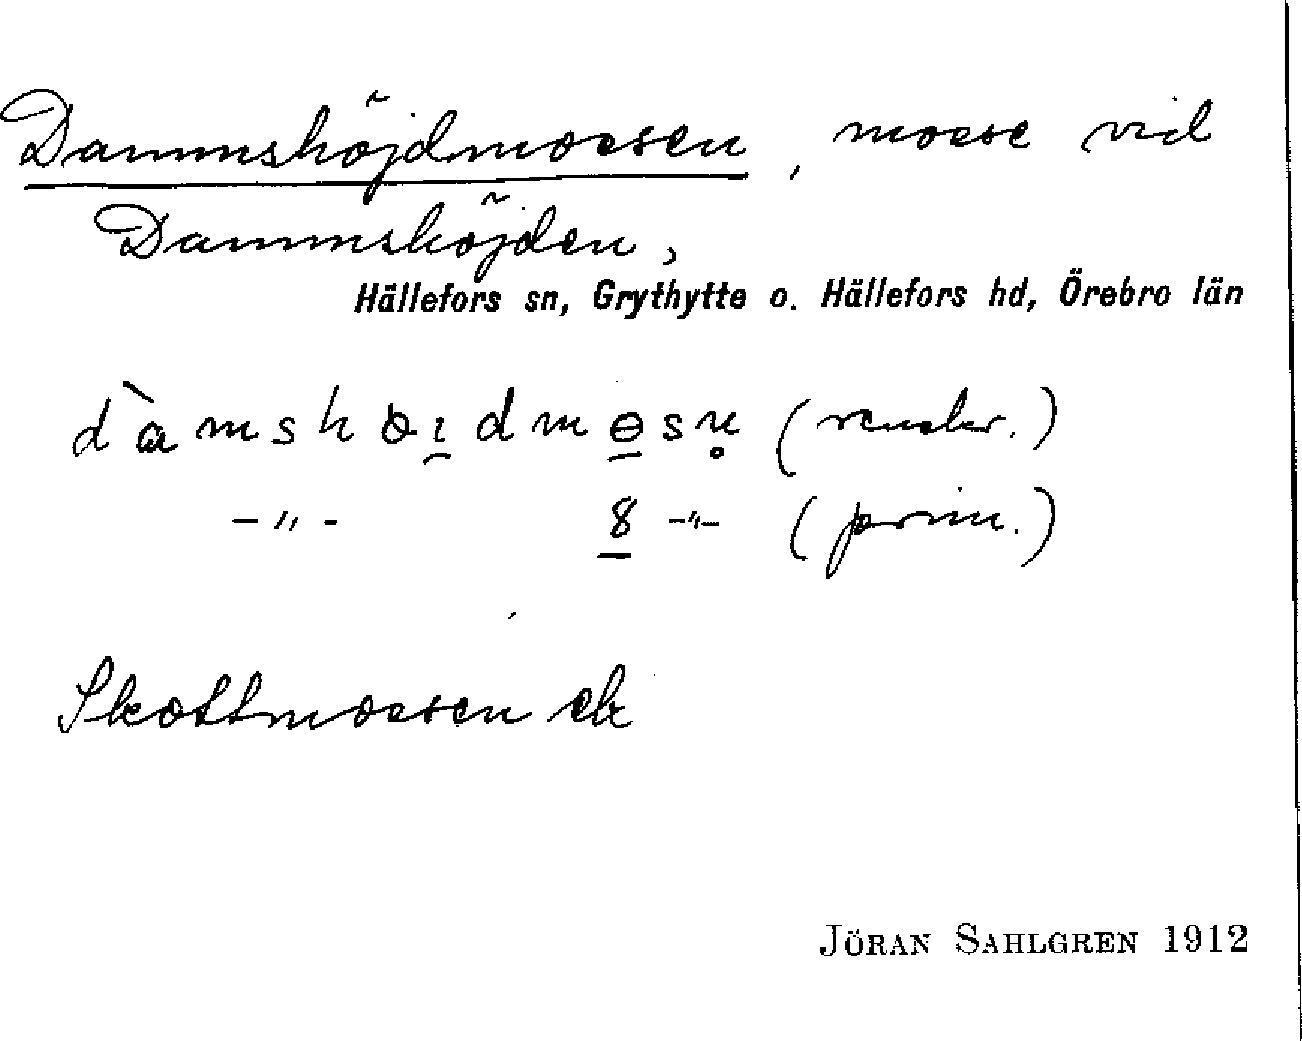 Dammshöjdmossen, mosse vid
Dammshöjden,
Hällefors sn, Grythytte o. Hällefors hd, Örebro län
dàmshöıdmɵsn̥ (vuxlr.)
–"– 8 –"– (prim.)
Skottmossen ek
JÖRAN SAHLGREN 1912